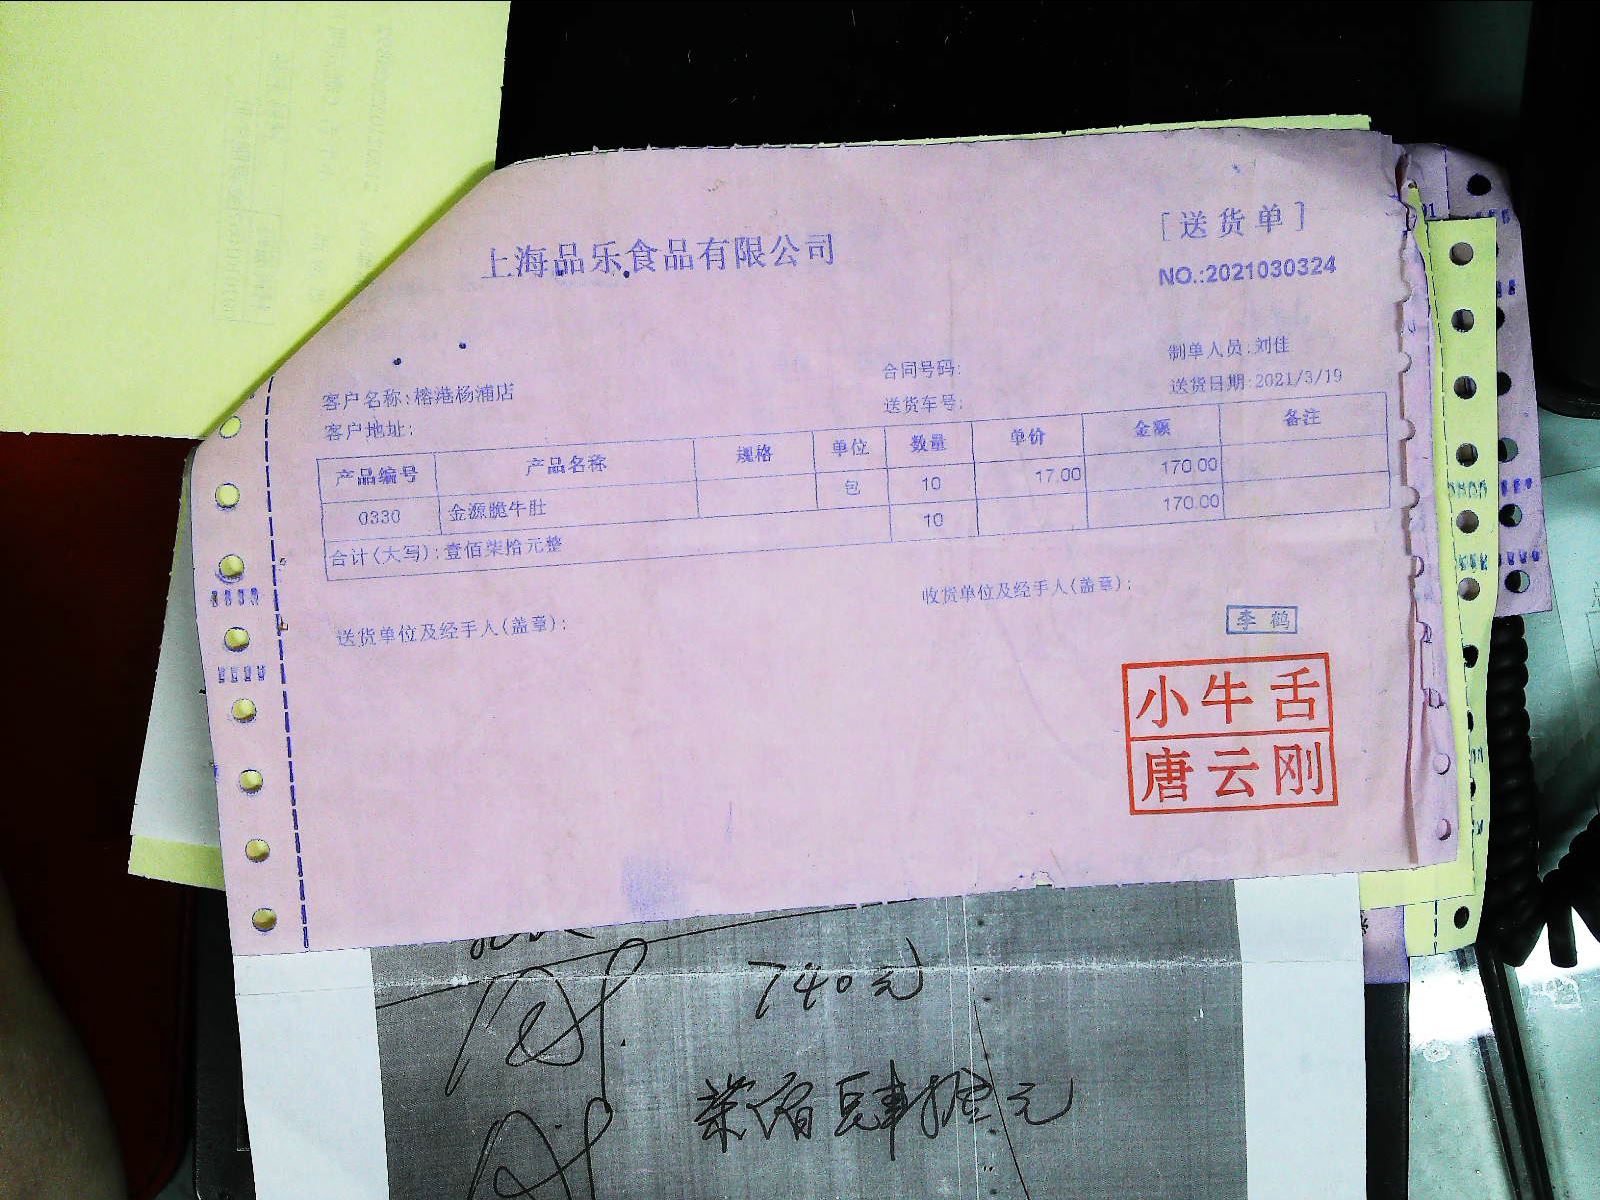 上海品乐食品有限公司
[送货单]
NO.:2021030324
制单人员:刘佳
合同号码:
送货日期:2021/3/19
客户名称:榕港杨浦店
送货车号:
客户地址:
产品编号 产品名称 规格 单位 数量 单价 金额 备注
0330 金源脆牛肚 包 10 17.00 170.00
合计(大写):壹佰柒拾元整 10 170.00
收货单位及经手人(盖章):
送货单位及经手人(盖章):
李鹤
小牛舌
唐云刚
740元
柒佰肆拾元